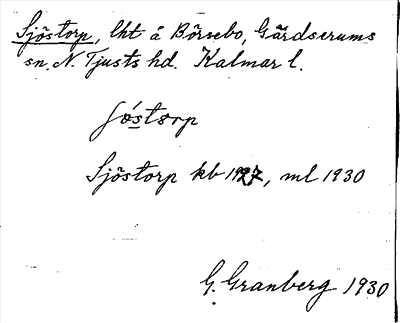 Sjöstorp, lht å Börsebo, Gärdserums
sn. N. Tjusts hd. Kalmar l.
Sjöstorp kb 1927, ml 1930
G. Granberg 1930